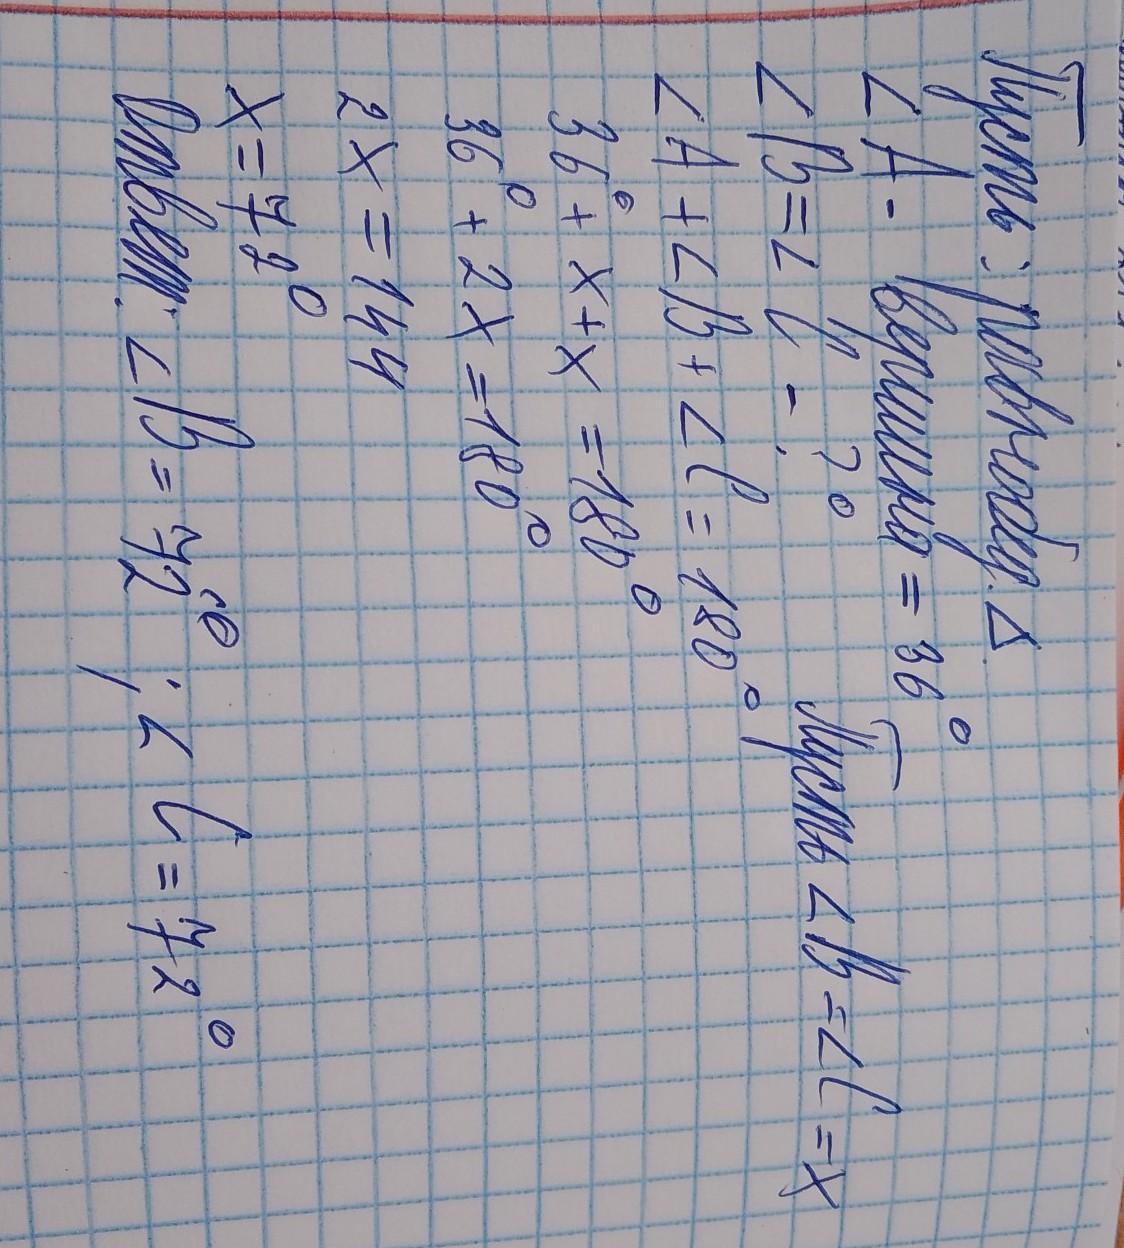 Пусть: равнобед. Δ
∠A - вершины = 36°
∠B = ∠C - ?
Пусть ∠B = ∠C = x
∠A + ∠B + ∠C = 180°
36° + x + x = 180°
36° + 2x = 180°
2x = 144
x = 72°
Ответ: ∠B = 72°; ∠C = 72°